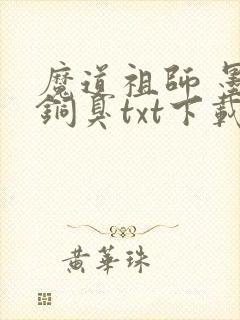 魔道祖師 墨
銅臭txt下載
黃華珠